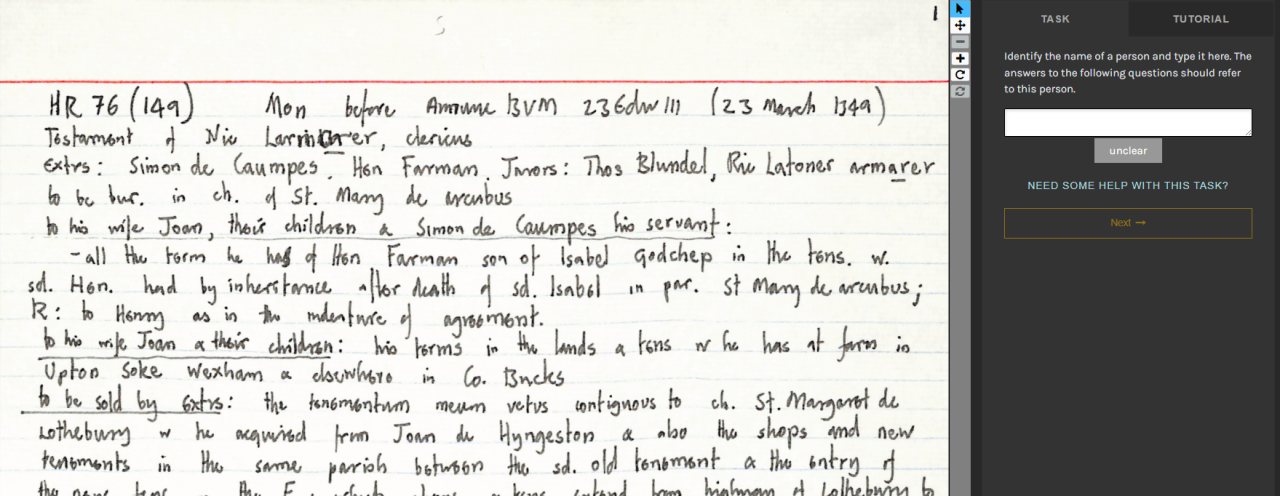 1
HR 76 (149) Mon before Annunc BVM 23 Edw III (23 March 1349)
Testament of Nic Larmurer, clericus
Extrs: Simon de Caumpes. Hen Farman. Jurors: Thos Blundel, Ric Latoner armarer
to be bur. in ch. of St. Mary de arcubus
to his wife Joan, their children & Simon de Caumpes his servant:
- all the term he has of Hen Farman son of Isabel Godchep in the tens. w.
sd. Hen. had by inheritance after death of sd. Isabel in par. St Mary de arcubus;
R: to Henry as in the indenture of agreement.
to his wife Joan & their children: his terms in the lands & tens w he has at farm in
Upton Soke Wexham & elsewhere in Co. Bucks
to be sold by extrs: the tenementum meum vetus contiguous to ch. St. Margaret de
Lothebury w he acquired from Joan de Hyngeston & also the shops and new
tenements in the same parish between the sd. old tenement & the entry of
the tens the extend from highway of Lothebury to
TASK
TUTORIAL
Identify the name of a person and type it here. The
answers to the following questions should refer
to this person.
unclear
NEED SOME HELP WITH THIS TASK?
Next →